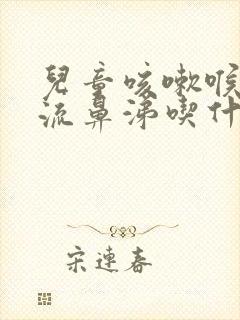 兒童咳嗽喉
流鼻涕喫什
宋連春